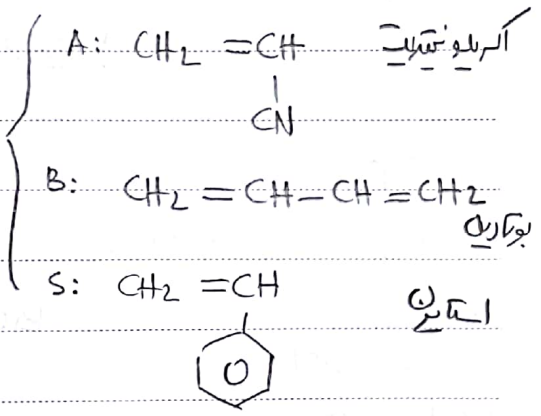 A: CH2 = CH اکریلونیتریت
CN
B: CH2 = CH – CH = CH2
بوتادین
S: CH2 = CH
استایرن